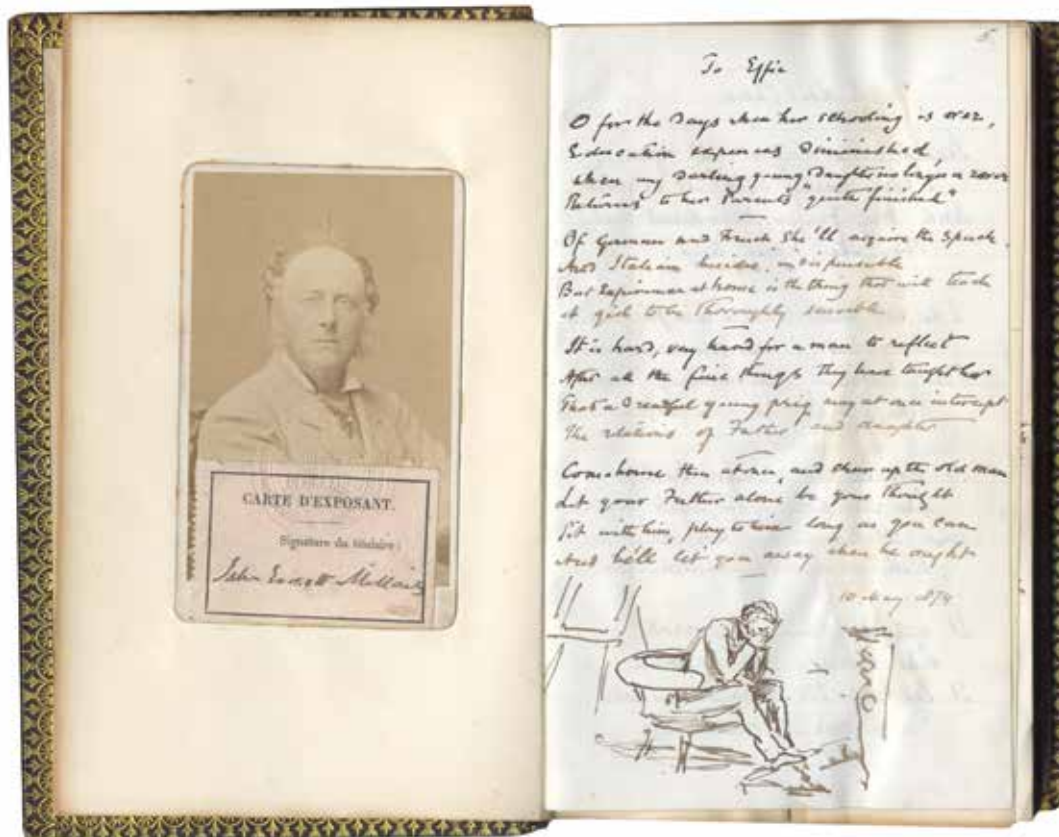 CARTE D'EXPOSANT.
Signature du titulaire:
John Everett Millais
5
To Effie
O for the days when her schooling is over,
Education expences diminished,
When my darling young daughter no longer a rover
Returns to her Parents "quite finished"
Of German and French she'll acquire the speech
And Italian besides, indispensable
But Experience at home is the thing that will teach
A girl to be thoroughly sensible
It is hard, very hard for a man to reflect
After all the fine things they have taught her
That a dreadful young prig may at once intercept
The relations of Father and daughter
Come home then at once, and cheer up the old man
Let your Father alone, be your thought
Sit with him, play to him long as you can
And he'll let you away when he ought
10 May 1874